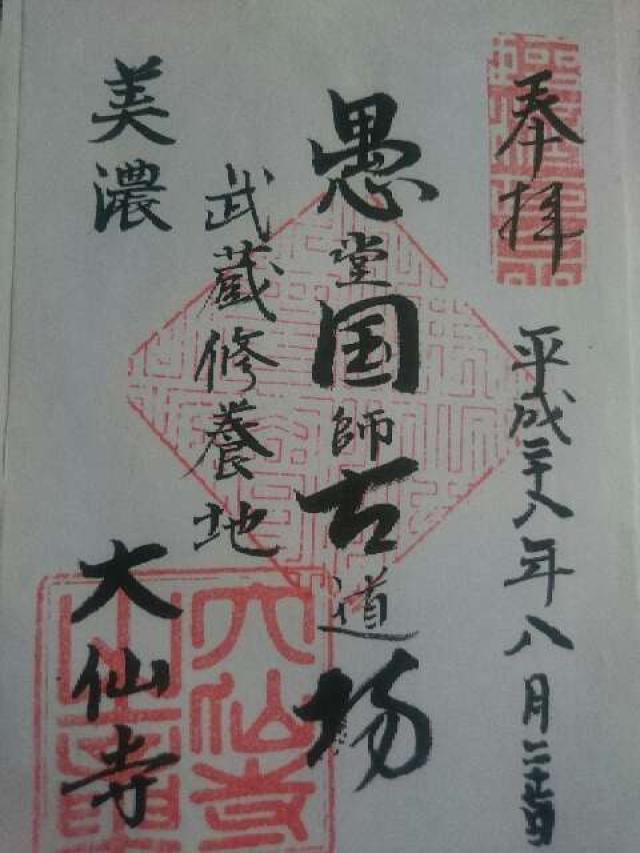 奉拝
平成二十八年八月二十五日
愚堂国師古道場
武蔵修養地
美濃
大仙寺